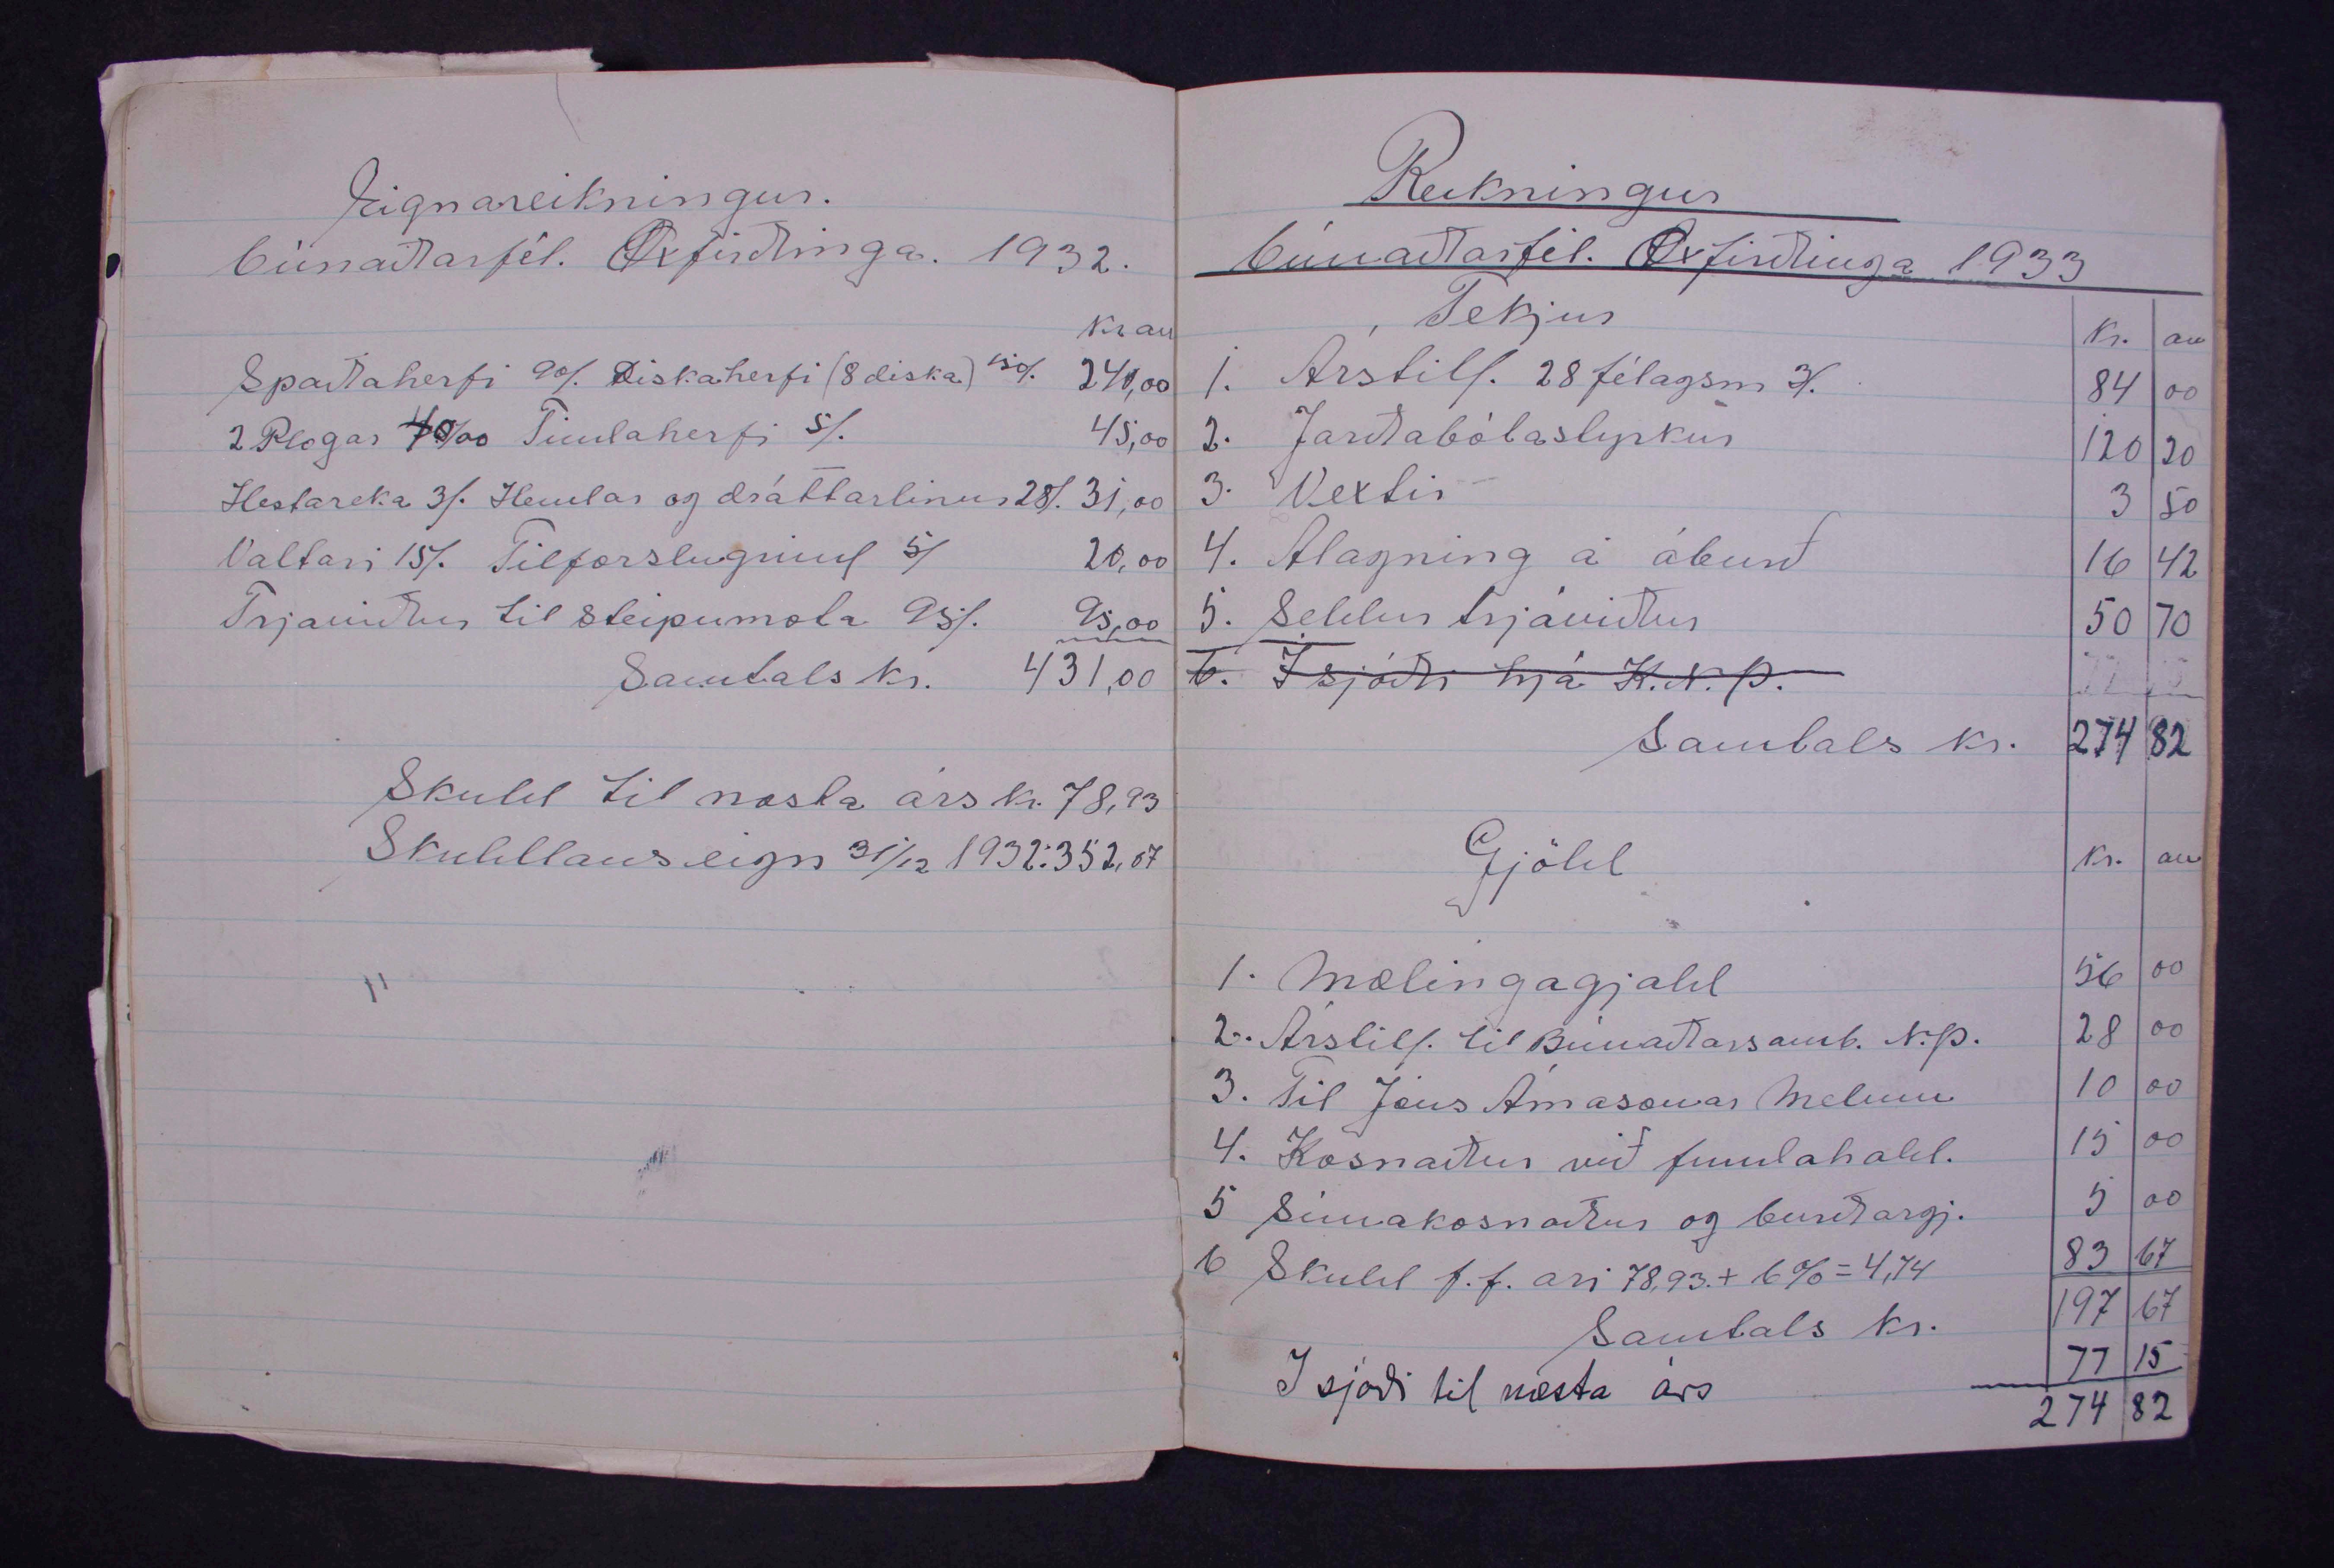 Eignareikningur.
búnaðarfél. Öxfirðinga. 1932.
Kr au
Spaðaherfi 90/. Diskaherfi (8 diska) 150/. 240,00
2 Plogar 40/00 Tindaherfi 5/. 45,00
Hestareka 3/. Hemlar og dráttarlinur 28/. 31,00
Valtari 15/. Tilfærslugrind 5/ 20,00
Trjaviður til steipumota 95/. 95,00
Samtals kr. 431,00
Skuld til næsta árs kr. 78,93
Skuldlaus eign 31/12 1932: 352,07
Reikningur
búnaðarfél. Öxfirðinga 1933
Tekjur
Kr. au
1. Árstill. 28 félagsm 3/. 84 00
2. Jarðabótastyrkur 120 20
3. Vextir 3 50
4. Alagning á áburð 16 42
5. Seldur trjáviður 50 70
6. I sjóði hjá K.N.Þ.
Samtals kr. 274 82
Gjöld
Kr. au
1. Mælingagjald 56 00
2. Árstill. til Búnaðarsamb. N.Þ. 28 00
3. Til Jóns Árnasonar Melum 10 00
4. Kosnaður við fundahald. 15 00
5 Símakosnaður og burðargj. 5 00
6 Skuld f.f. ari 78,93. + 6% = 4,74 83 67
Samtals kr. 197 67
I sjóði til næsta árs 77 15
274 82